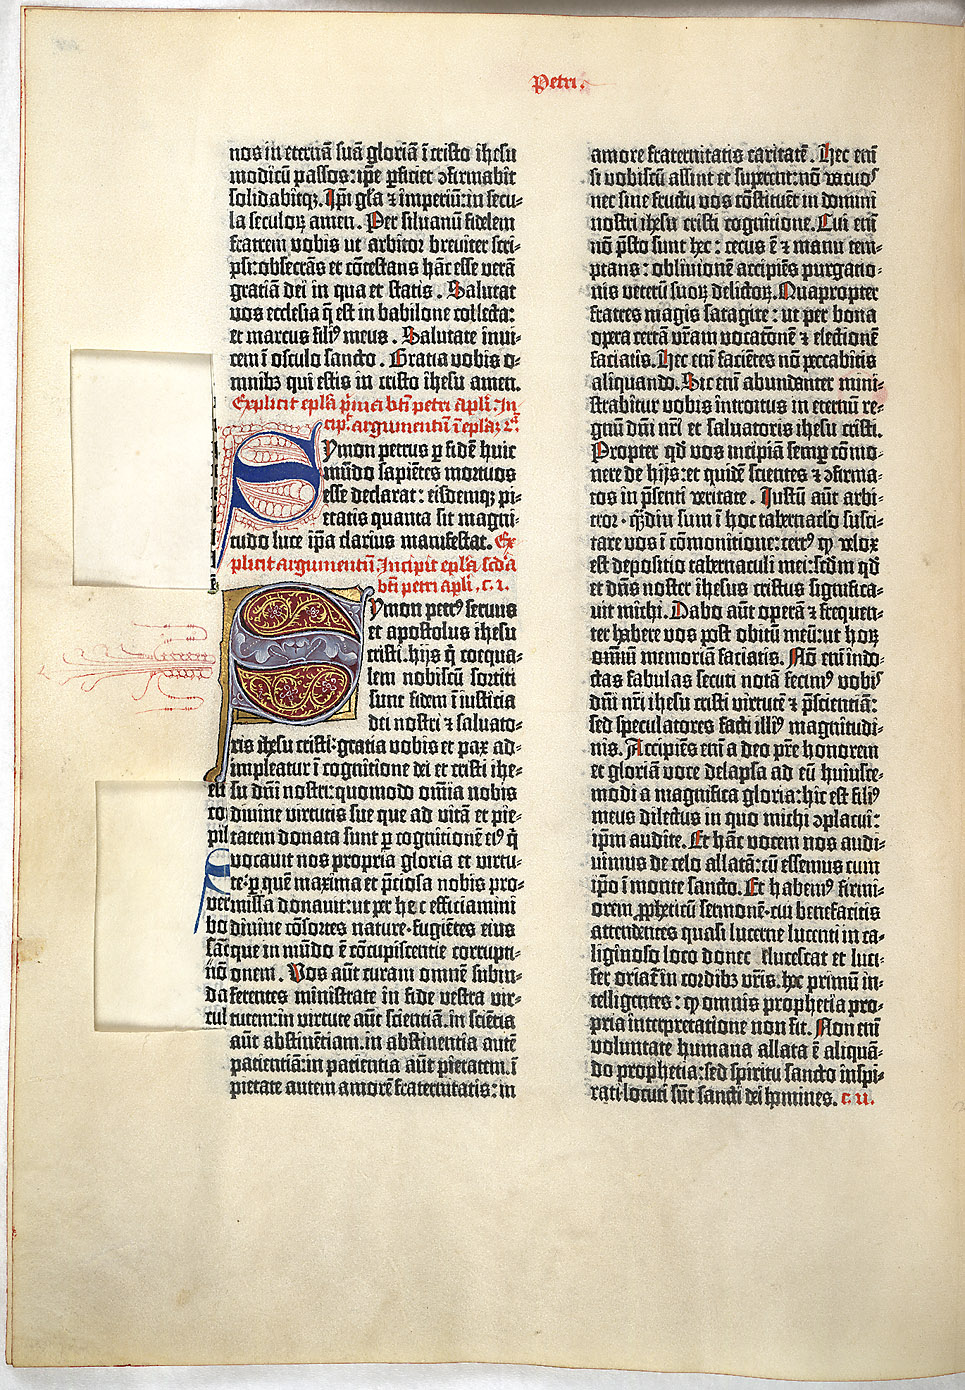 Petri.
nos in eternā suā gloriā ī cristo ihesu
modicū passos: ip̄e ꝑficiet ꝯfirmabit
solidabitqꝫ. Ip̄i gl̄a ⁊ imperiū: in secu-
la seculoꝝ amen. Per siluanū fidelem
fratrem vobis ut arbitror breuiter scri-
psi: obsecrās et cōtestans hāc esse verā
gratiā dei in qua et statis. Salutat
vos ecclesia q̄ est in babilone collecta:
et marcus filiꝰ meus. Salutate inui-
cem ī osculo sancto. Gratia vobis o-
mnibꝫ qui estis in cristo ihesu amen.
Explicit epl̄a p̄ma bt̄i petri apl̄i. In
cip̄ argumentū ī epl̄aꝫ 2ᵃ.
Symon petrus ꝑ fidē huic
mūdo sapiētes mortuos
esse declarat: eisdemqꝫ pi-
etatis quanta sit magni-
tudo luce ip̄a clarius manifestat. Ex
plicit argumentū. Incipit epl̄a scd̄a
bt̄i petri apl̄i. c. i.
Symon petrꝰ seruus
et apostolus ihesu
cristi. hijs q̄ coequa-
lem nobiscū sortiti
sunt fidem ī iusticia
dei nostri ⁊ saluato-
ris ihesu cristi: gratia vobis et pax ad-
impleatur ī cognitione dei et cristi ihe-
su dn̄i nostri: quomodo om̄ia nobis
diuine virtutis sue que ad vitā et pie-
tatem donata sunt ꝑ cognitionē eiꝰ q̄
vocauit nos propria gloria et virtu-
te. ꝑ quē maxima et p̄ciosa nobis pro-
missa donauit: ut per hec efficiamini
diuine cōsortes nature. fugiētes eius
que in mūdo ē cōcupiscentie corrupti-
onem. Vos aūt curam omnē subin-
ferentes ministrate in fide vestra vir-
tutem: in virtute aūt scientiā. in sciētia
aūt abstinētiam. in abstinentia autē
patientiā: in patientia aūt pietatem. ī
pietate autem amorē fraternitatis: in
est
co
pil
ver
bo
sāc
nō
da
tul
amore fraternitatis caritatē. Hec enī
si vobiscū assint et superent: nō vacuos
nec sine fructu vos cōstituēt in domini
nostri ihesu cristi cognitione. Cui enī
nō p̄sto sunt hec: cecus ē ⁊ manu tem-
ptans: obliuionē accipiēs purgatio-
nis veterū suoꝝ delictoꝝ. Quapropter
fratres magis satagite: ut per bona
opera certā vr̄am vocatonē ⁊ electionē
faciatis. Hec enī faciētes nō peccabitis
aliquando. Sic enī abundanter mini-
strabitur vobis introitus in eternū re-
gnū dn̄i nr̄i et saluatoris ihesu cristi.
Propter qd̄ vos incipiā semꝑ cōmo-
nere de hijs: et quidē scientes ⁊ ꝯfirma-
tos in p̄senti veritate. Iustū aūt arbi-
tror. q̄diu sum ī hoc tabernaclo susci-
tare vos ī cōmonitione: certꝰ ꝙ velox
est depositio tabernaculi mei: scd̄m qd̄
et dn̄s noster ihesus cristus significa-
uit michi. Dabo aūt operā ⁊ frequen-
ter habere vos post obitū meū: ut hoꝝ
om̄iū memoriā faciatis. Nō enī indo-
ctas fabulas secuti notā fecimꝰ vobis
dn̄i nr̄i ihesu cristi virtutē ⁊ p̄scientiā:
sed speculatores facti illiꝰ magnitudi-
nis. Accipiēs enī a deo pr̄e honorem
et gloriā voce delapsa ad eū huiusce-
modi a magnifica gloria: hic est filiꝰ
meus dilectus in quo michi ꝯplacui:
ip̄m audite. Et hāc vocem nos audi-
uimus de celo allatā: cū essemus cum
ip̄o ī monte sancto. Et habemꝰ firmi-
orem ꝓpheticū sermonē. cui benefacitis
attendentes quasi lucerne lucenti in ca-
liginoso loco donec elucescat et luci-
fer oriat̄ in cordibꝫ vr̄is. hoc primū in-
telligentes: ꝙ omnis prophetia pro-
pria interpretatione non fit. Non enī
voluntate humana allata ē aliquā-
do prophetia: sed spiritu sancto inspi-
rati locuti sūt sancti dei homines. c. ii.